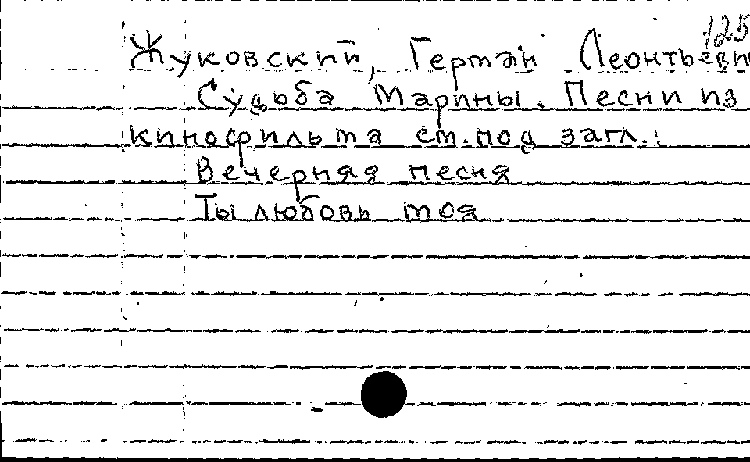 125
Жуковский, Герман Леонтьеви
Судьба Марины. Песни из
кинофильма см. под загл.:
Вечерняя песня
Ты любовь моя